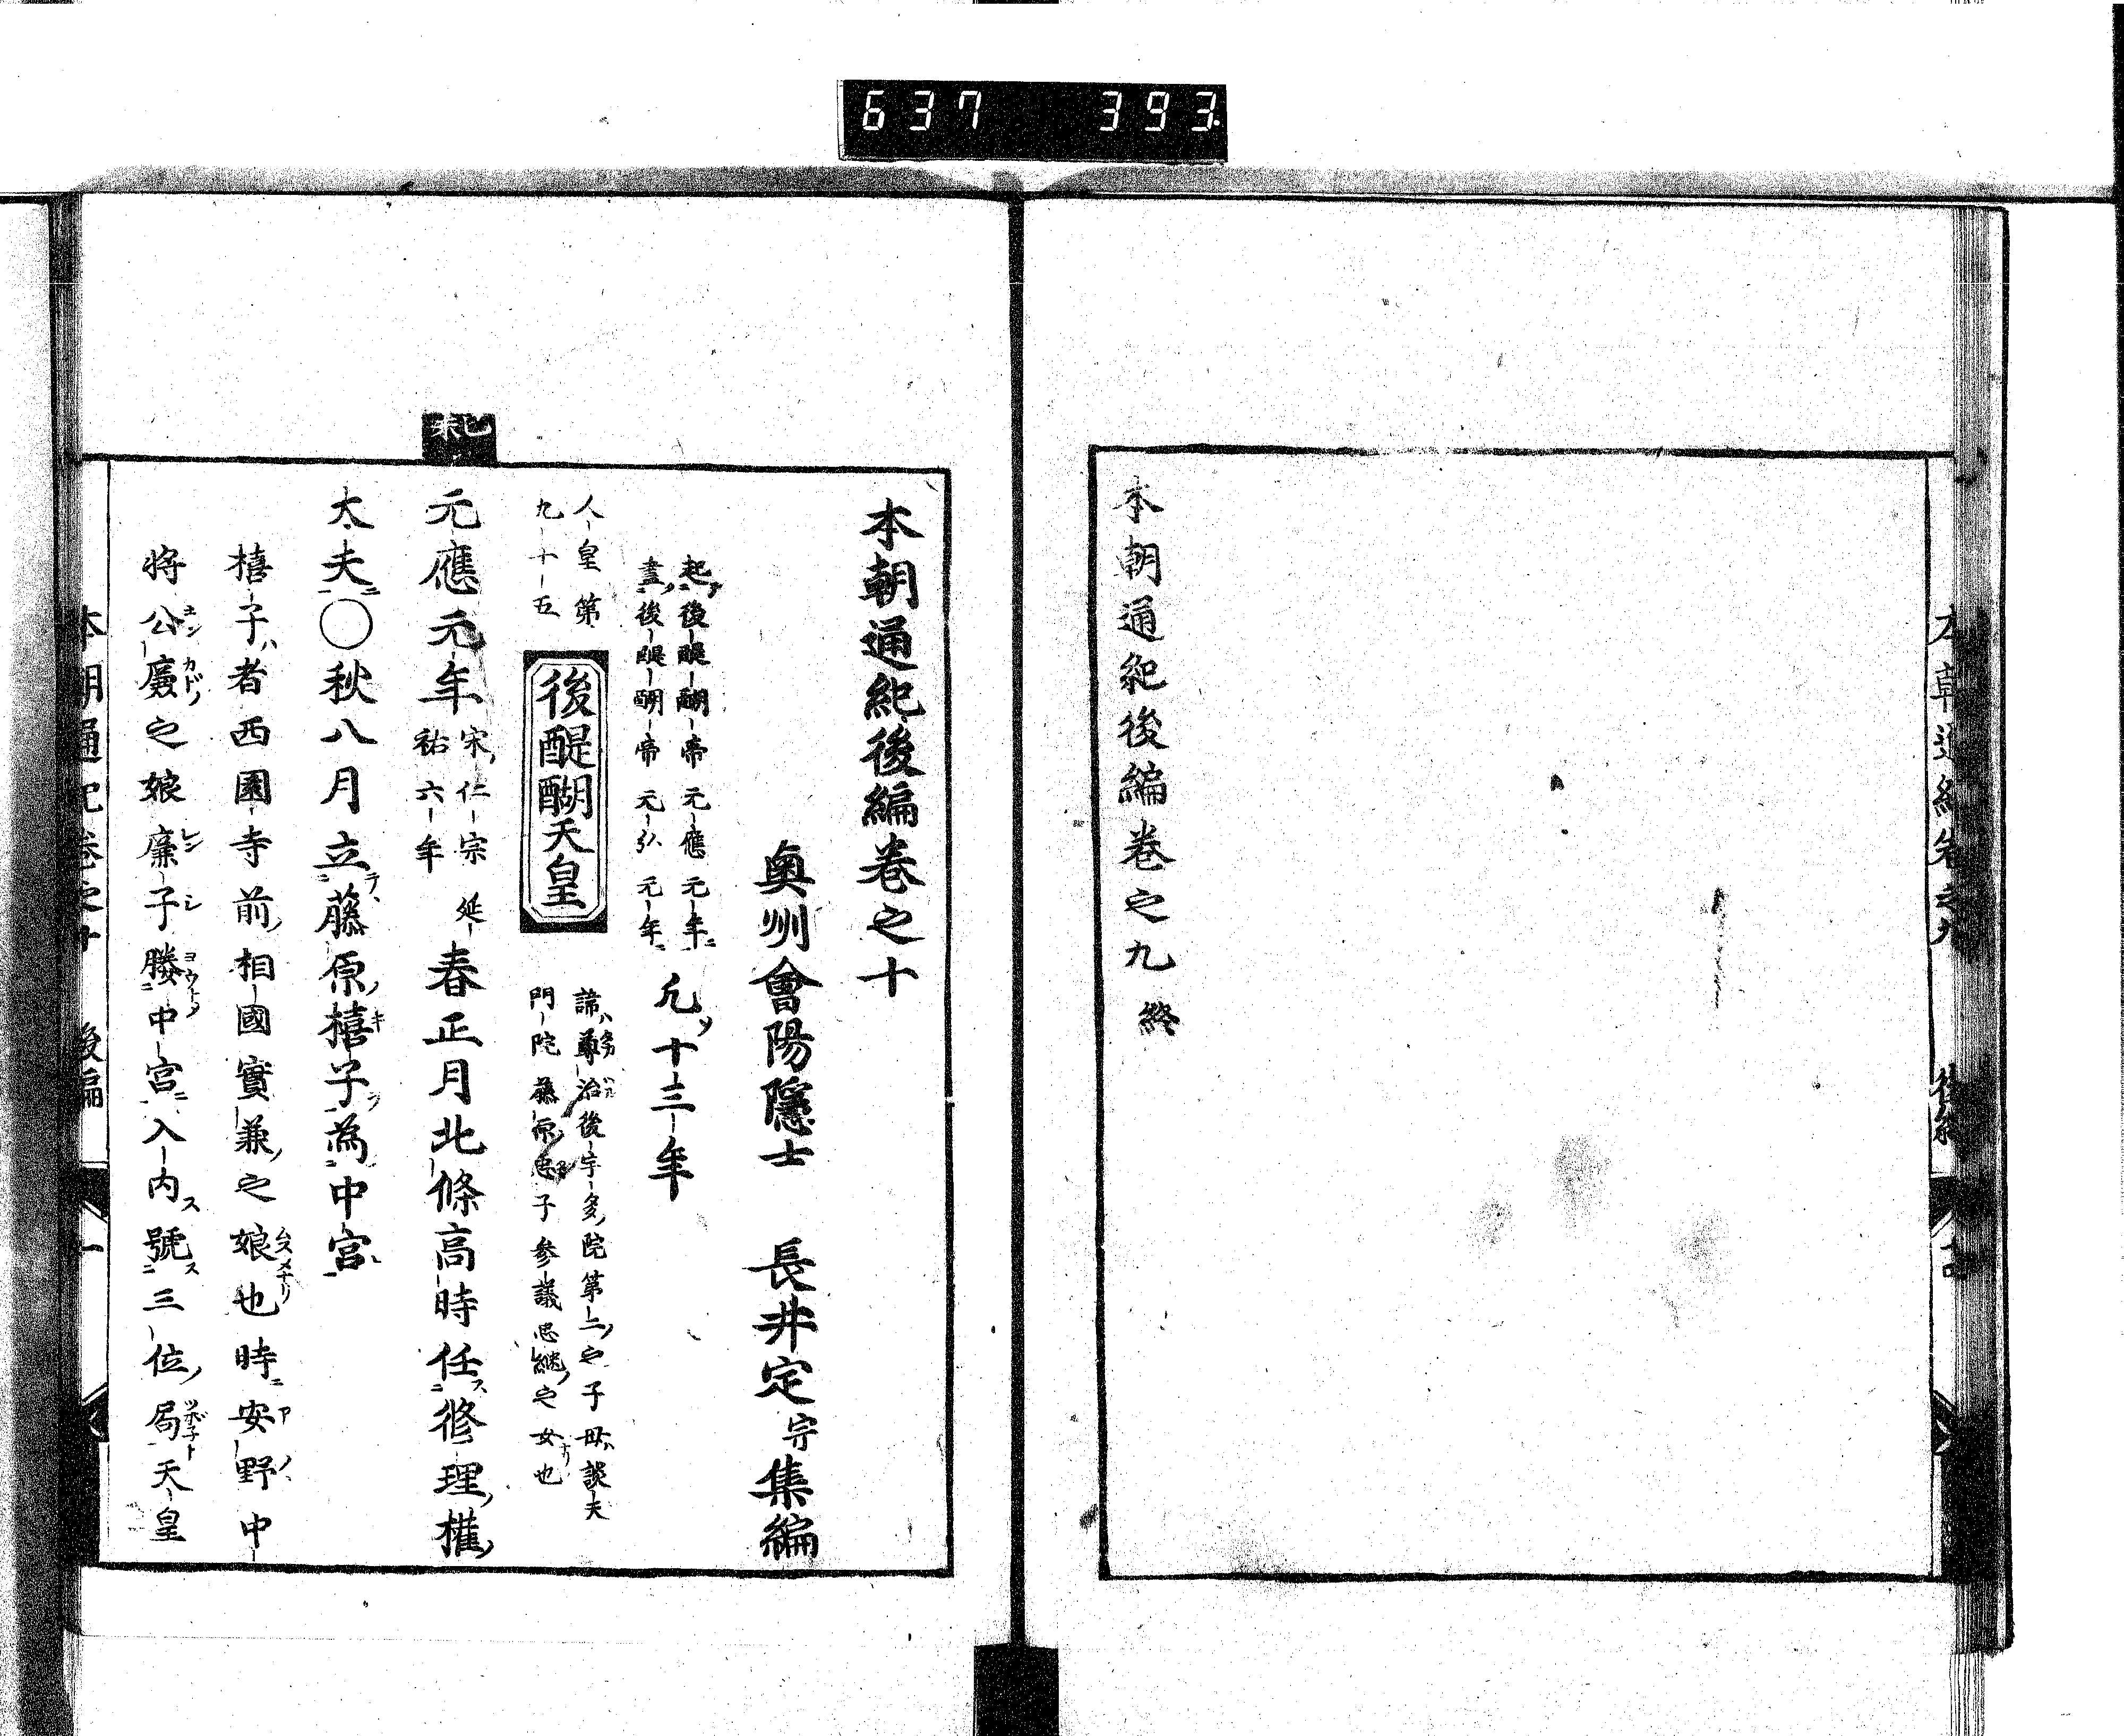 637 393
本朝通紀後編巻之九 終
本朝通紀後編巻之十
奥州會陽隱士 長井定宗集編
起後醍醐帝元應元年
盡後醍醐帝元弘元年
凡十三年
人皇第
九十五
後醍醐天皇
諱尊治後宇多院第二之子母談天
門院藤原忠子參議忠繼之女也
己未
元應元年
宋仁宗延
祐六年
春正月北條高時任修理權
大夫○秋八月立藤原禧子為中宮
禧子者西園寺前相國實兼之娘也時安野中
將公廉之娘廉子媵中宮入内號三位局天皇